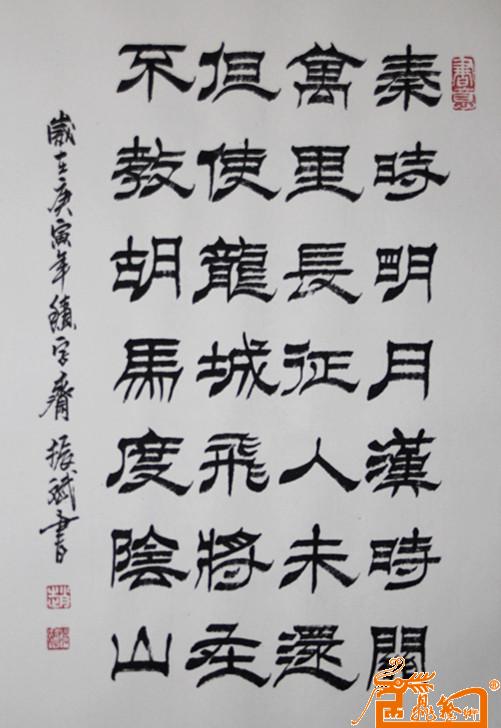 秦時明月漢時關
萬里長征人未還
但使龍城飛將在
不教胡馬度陰山
歲在庚寅年 字齋振斌書